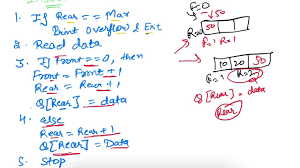 1. If Rear == Max
Print Overflow & Exit
2. Read data
3. If Front == 0, then
Front = Front + 1
Rear = Rear + 1
Q[Rear] = data
4. else
Rear = Rear + 1
Q[Rear] = Data
5. Stop
F=0
50
R=
50
F=1 R=1
10 20 50
F=1 R=2
Q[Rear] = data
Rear